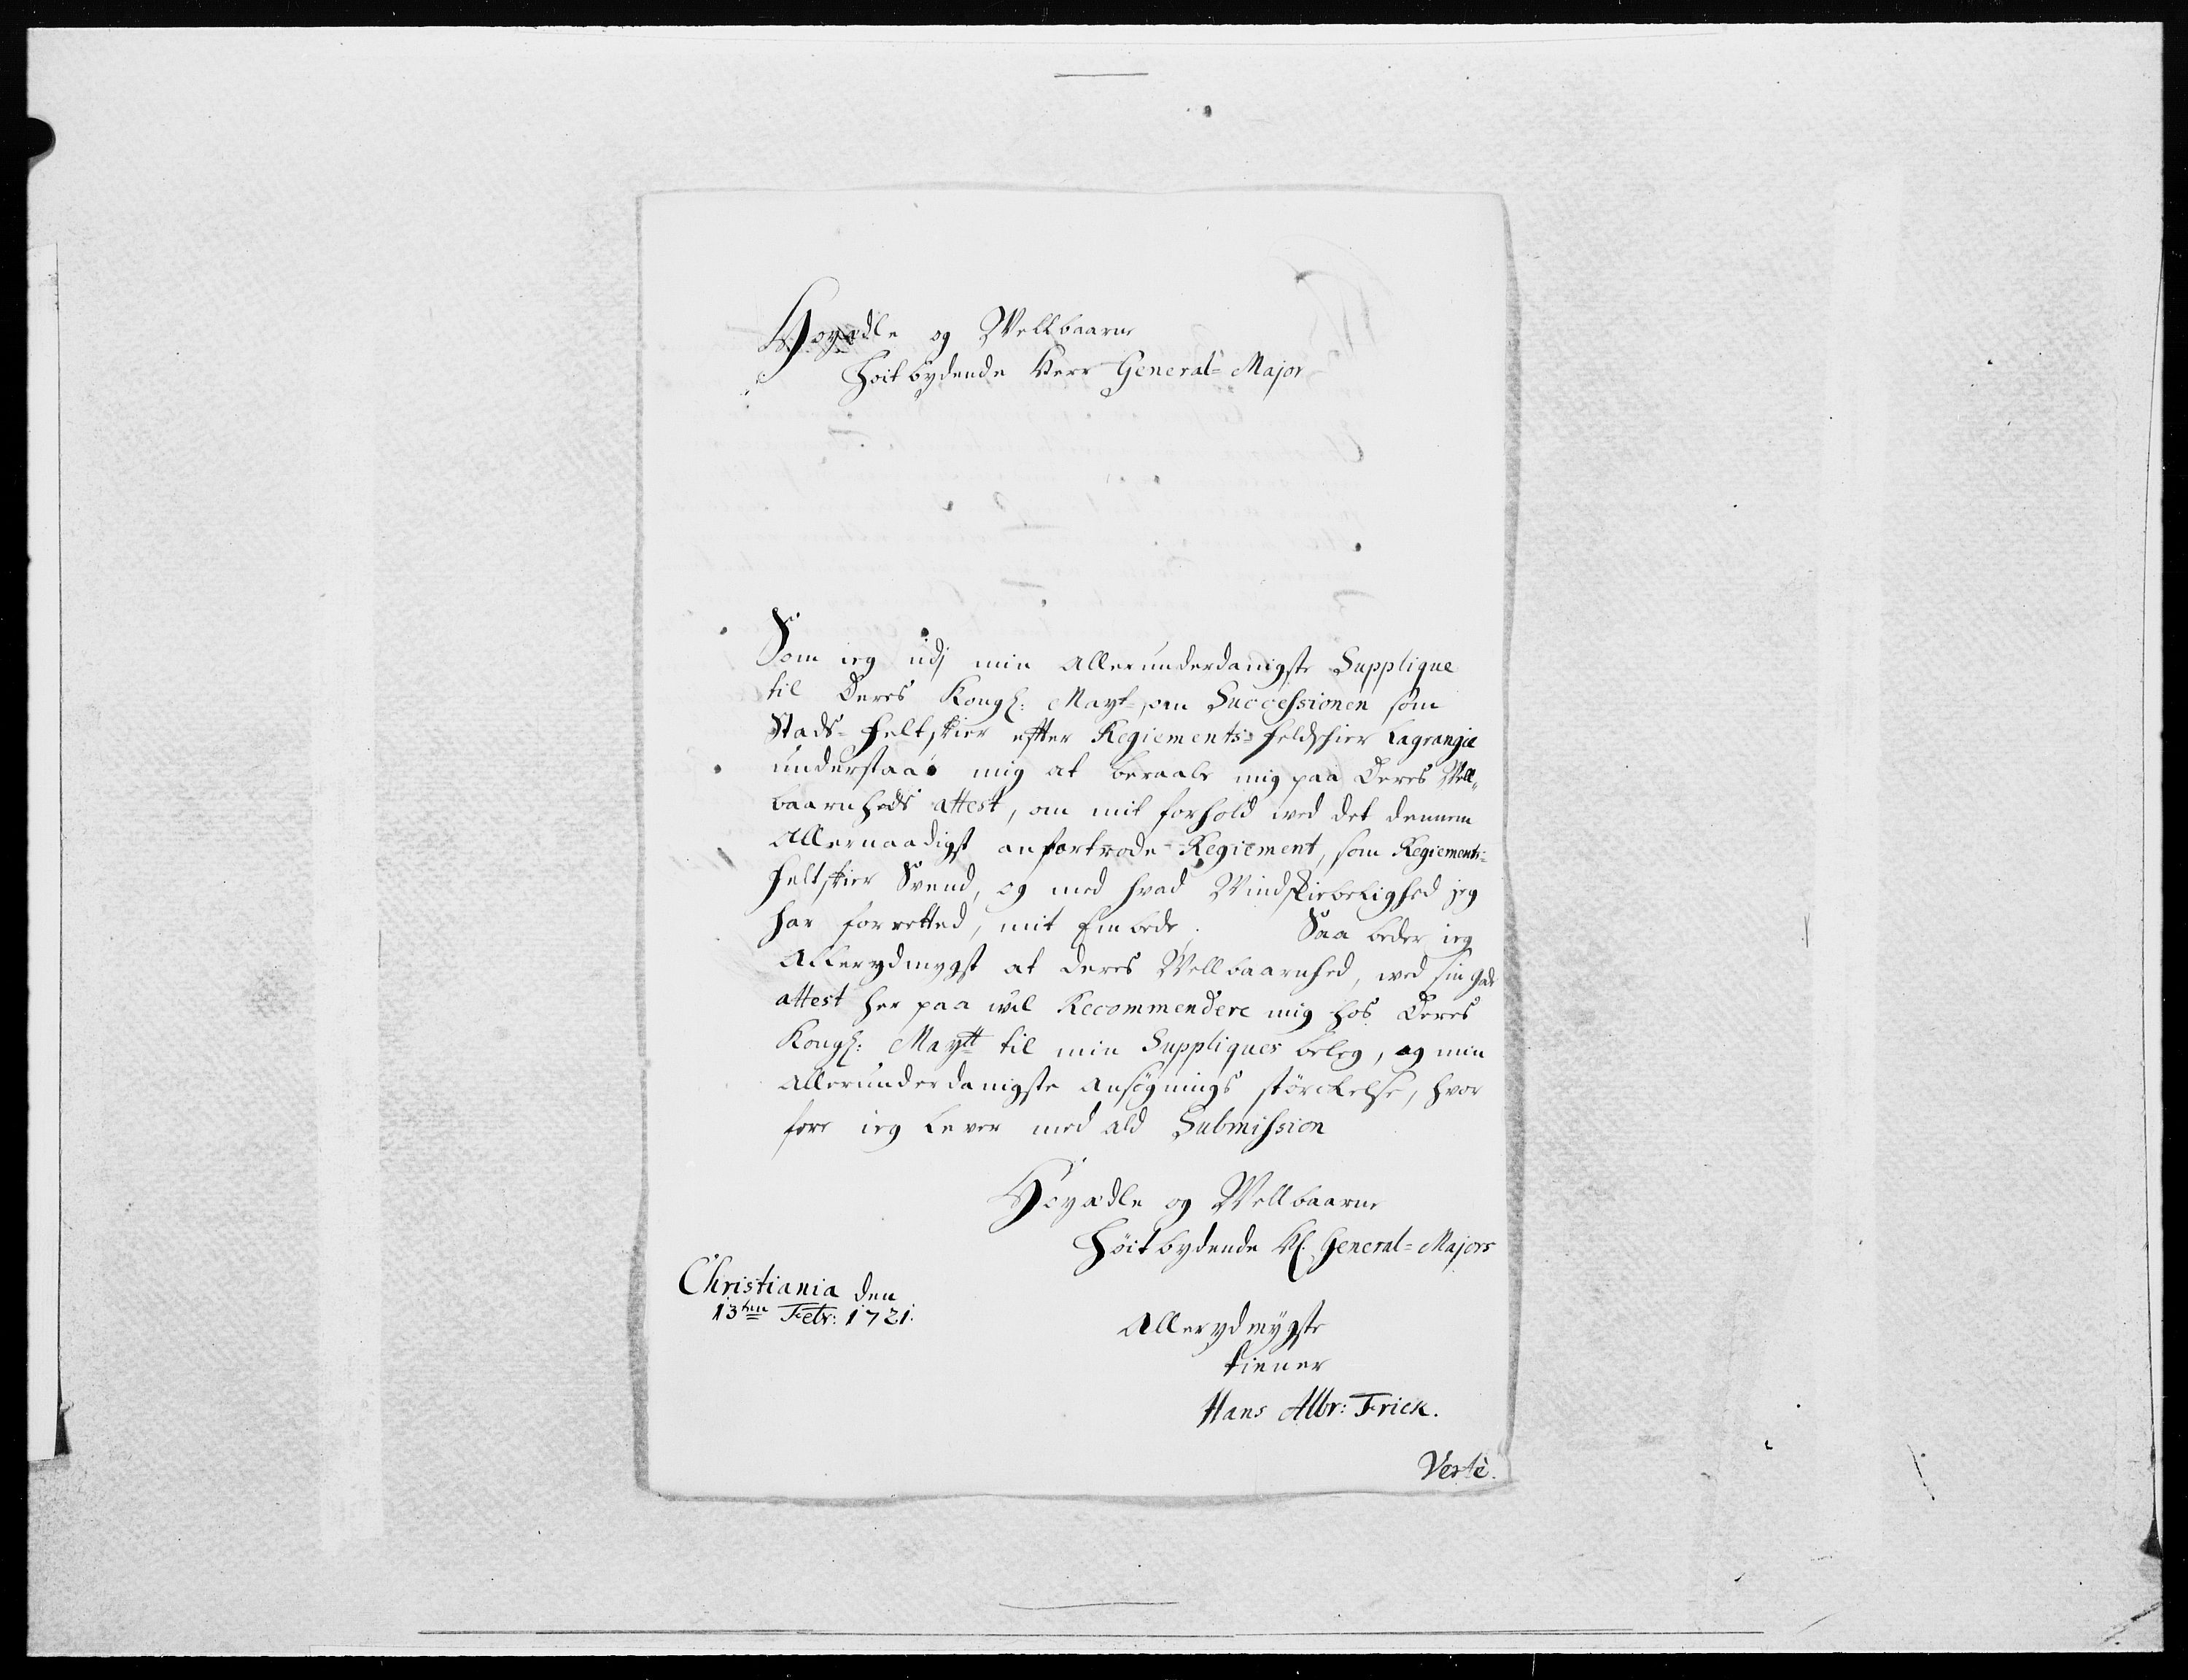 Hoyædle og Wellbaarne
Høit bydende Herr General-Major
Som ieg udj min Allerunderdanigste Supplique
til Deres Kongl: Mayt. om Successionen som
Stads-Feltskier efter Regiements-Feldskier Lagrangie
understaar mig at beraabe mig paa Deres Well,,
baarnheds attest, om mit forhold wed det dennem
Allernaadigst anfortrode Regiement, som Regiements-
Feltskier Svend, og med hvad Windskibelighed jeg
har forretted, mit Embede. Saa beder ieg
Allerydmygst at Deres Wellbaarnhed, wed sin gode
attest her paa wil Recommendere mig hos Deres
Kongl: Maytt til min Suppliques beleg, og min
Allerunderdanigste Ansøgnings størckelse, hvor
fore ieg lever med ald Submission
Hoyædle og Wellbaarne
Høit bydende Hr. General-Majors
Christiania den
13ten Febr: 1721.
Allerydmygste
tiener
Hans Albr: Frick.
Verte.